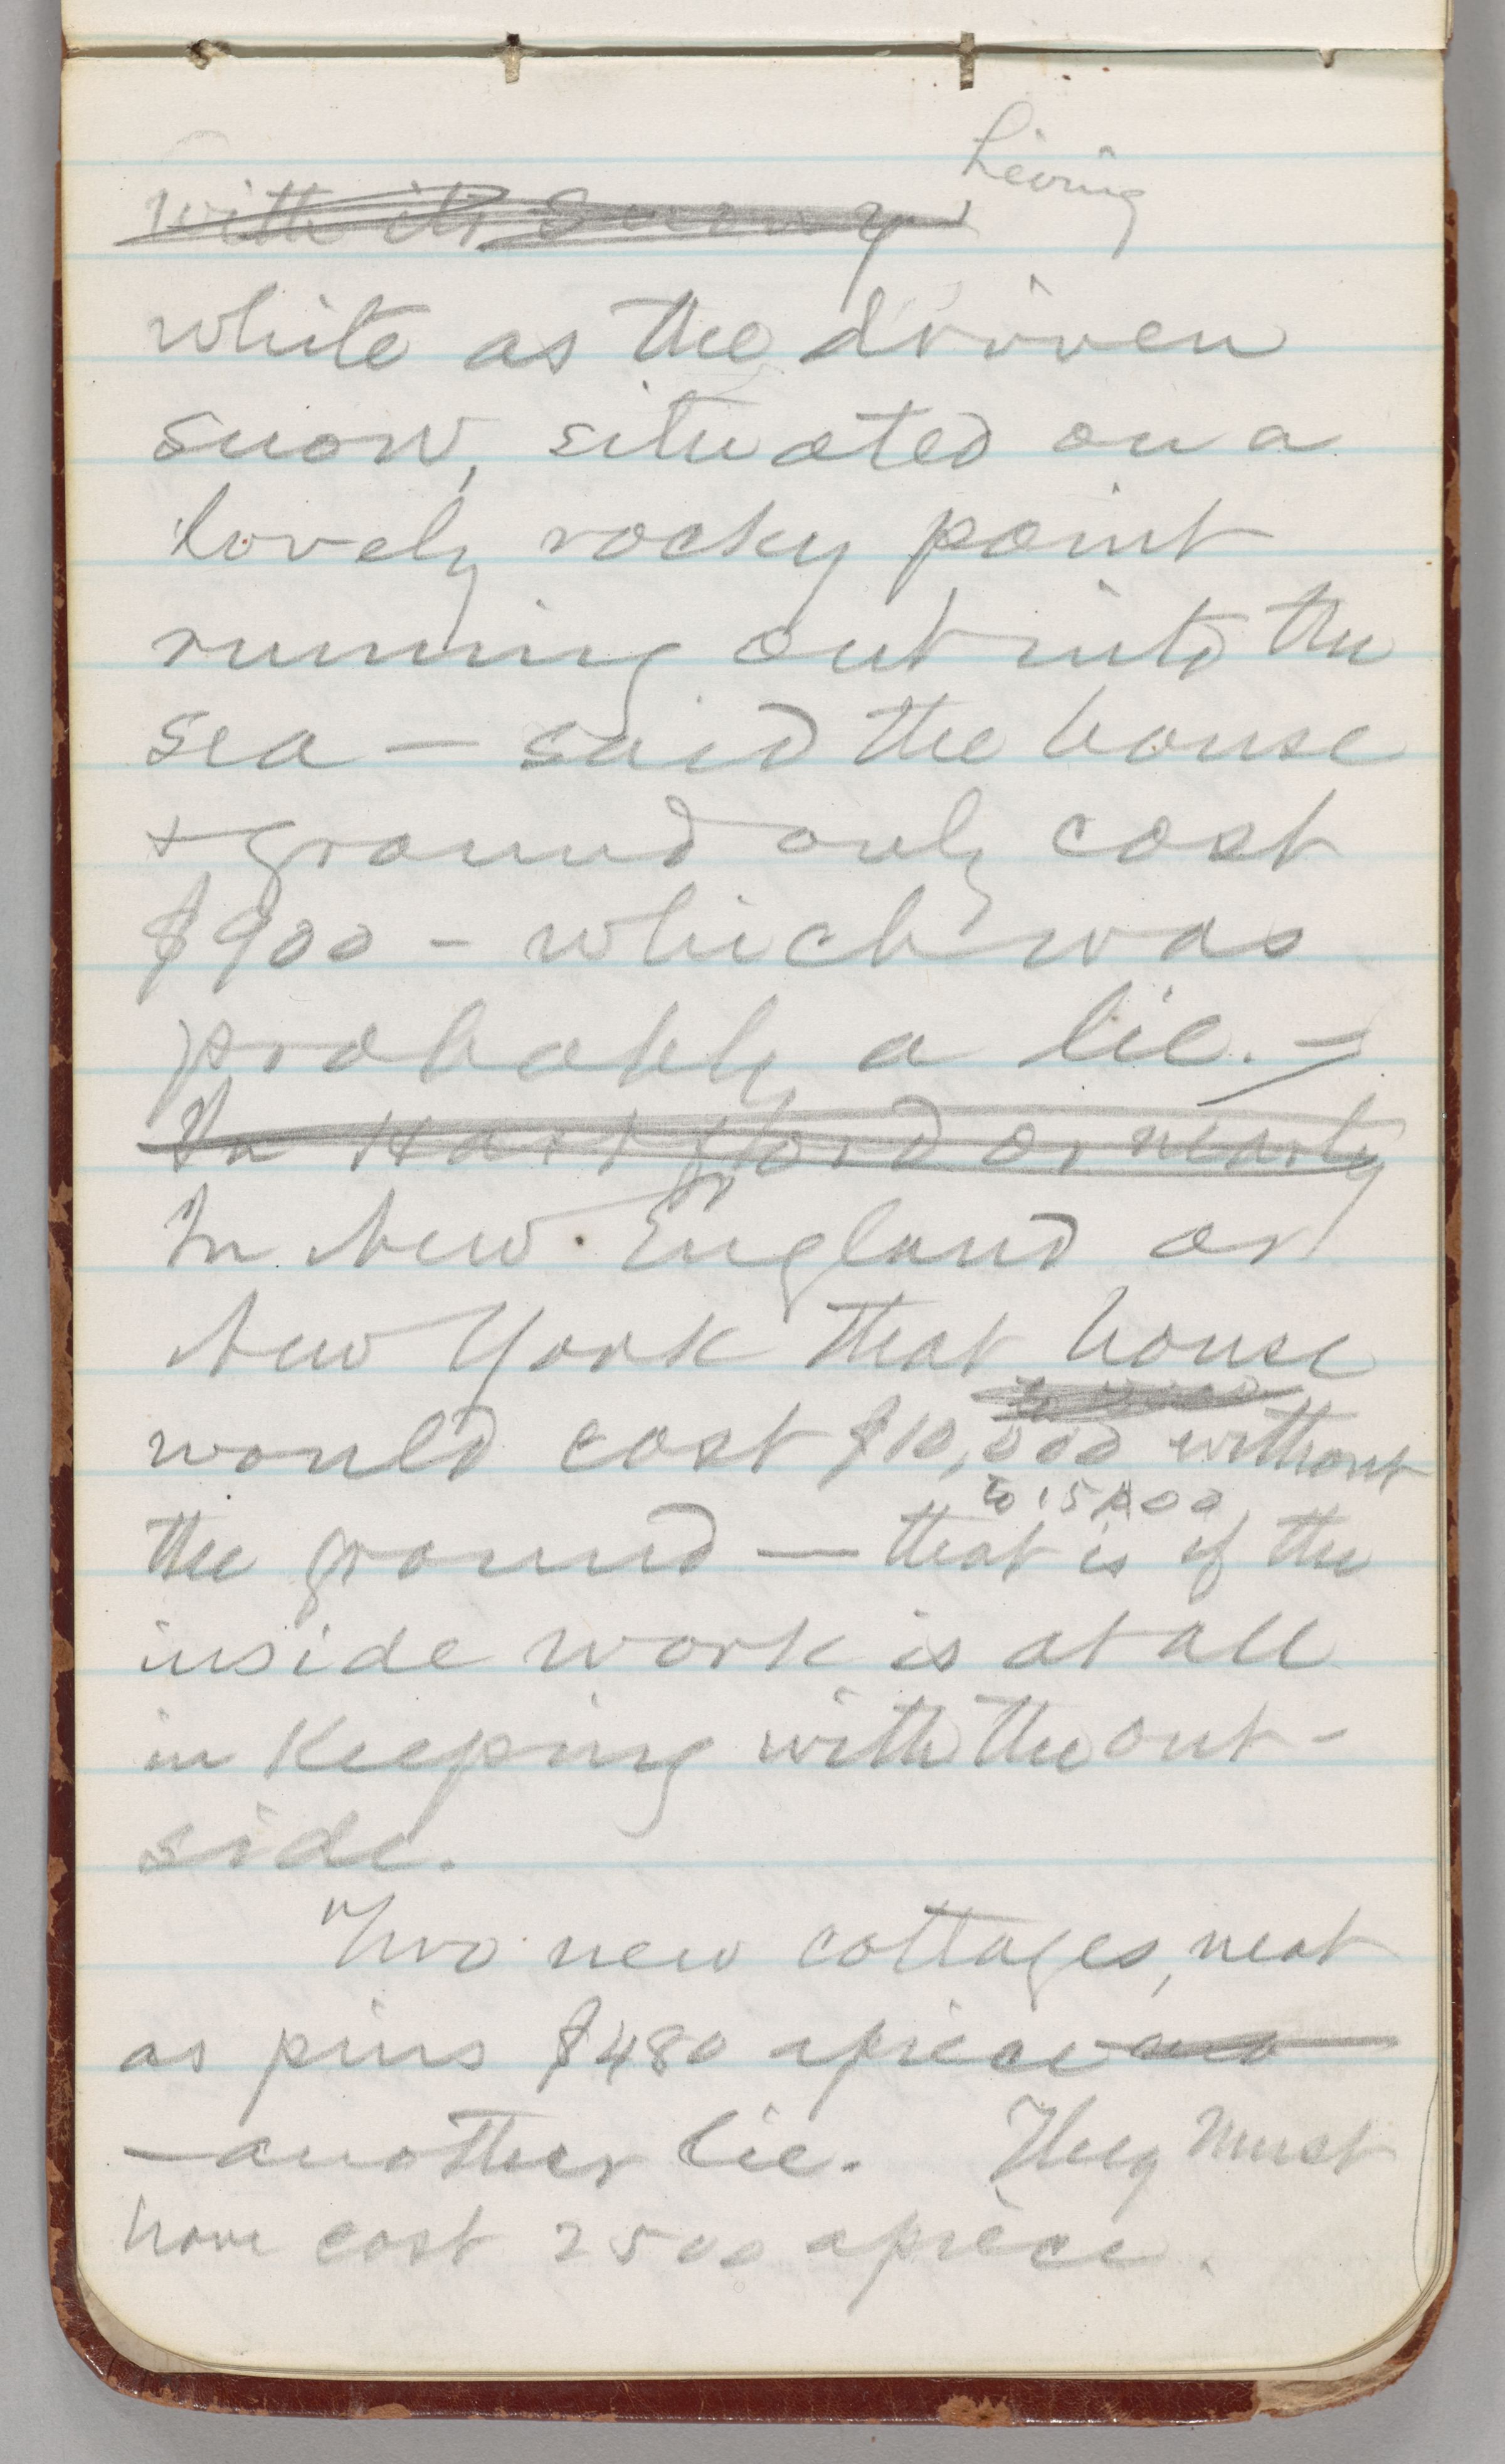 Living
with its snowy
white as the driven
snow, situated on a
lovely rocky point
running out into the
sea — said the house
+ ground only cost
$900 - which was
probably a lie. —
In Hartford or nearly
In New England or
New York that house
would cost $10,000 without
to 15,000
the ground — that is if the
inside work is at all
in keeping with the out-
side.
Two new cottages, neat
as pins $480 apiece
— another lie. They must
have cost 2500 apiece.